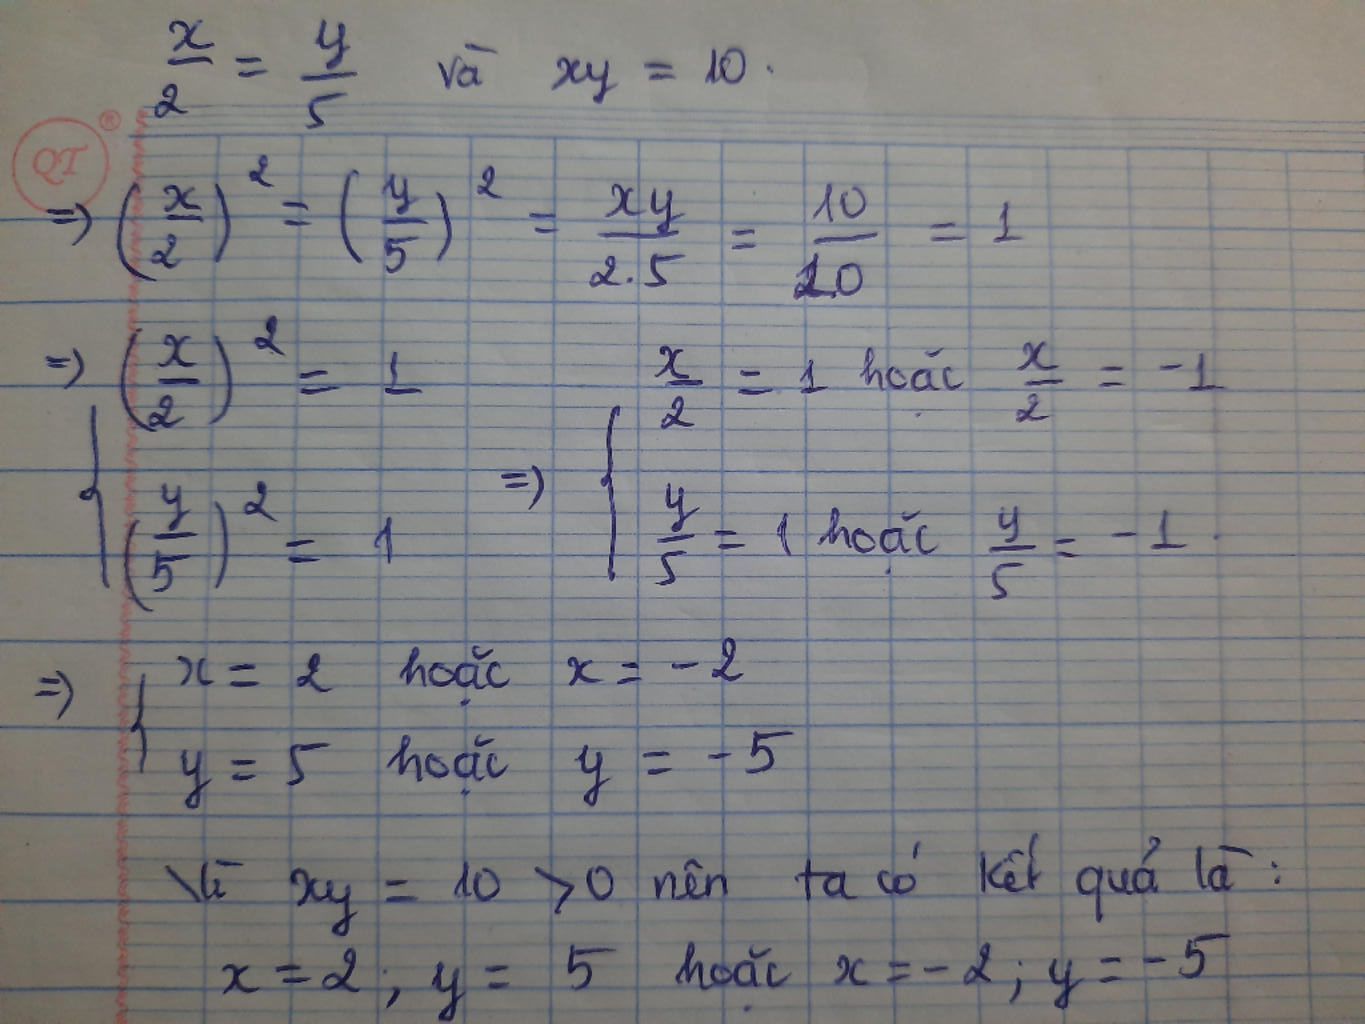 x/2 = y/5 và xy = 10.
QT ®
=> (x/2)² = (y/5)² = xy/2.5 = 10/10 = 1
=> { (x/2)² = 1
(y/5)² = 1
=> { x/2 = 1 hoặc x/2 = -1
y/5 = 1 hoặc y/5 = -1.
=> { x = 2 hoặc x = -2
y = 5 hoặc y = -5
Vì xy = 10 > 0 nên ta có kết quả là:
x = 2; y = 5 hoặc x = -2; y = -5